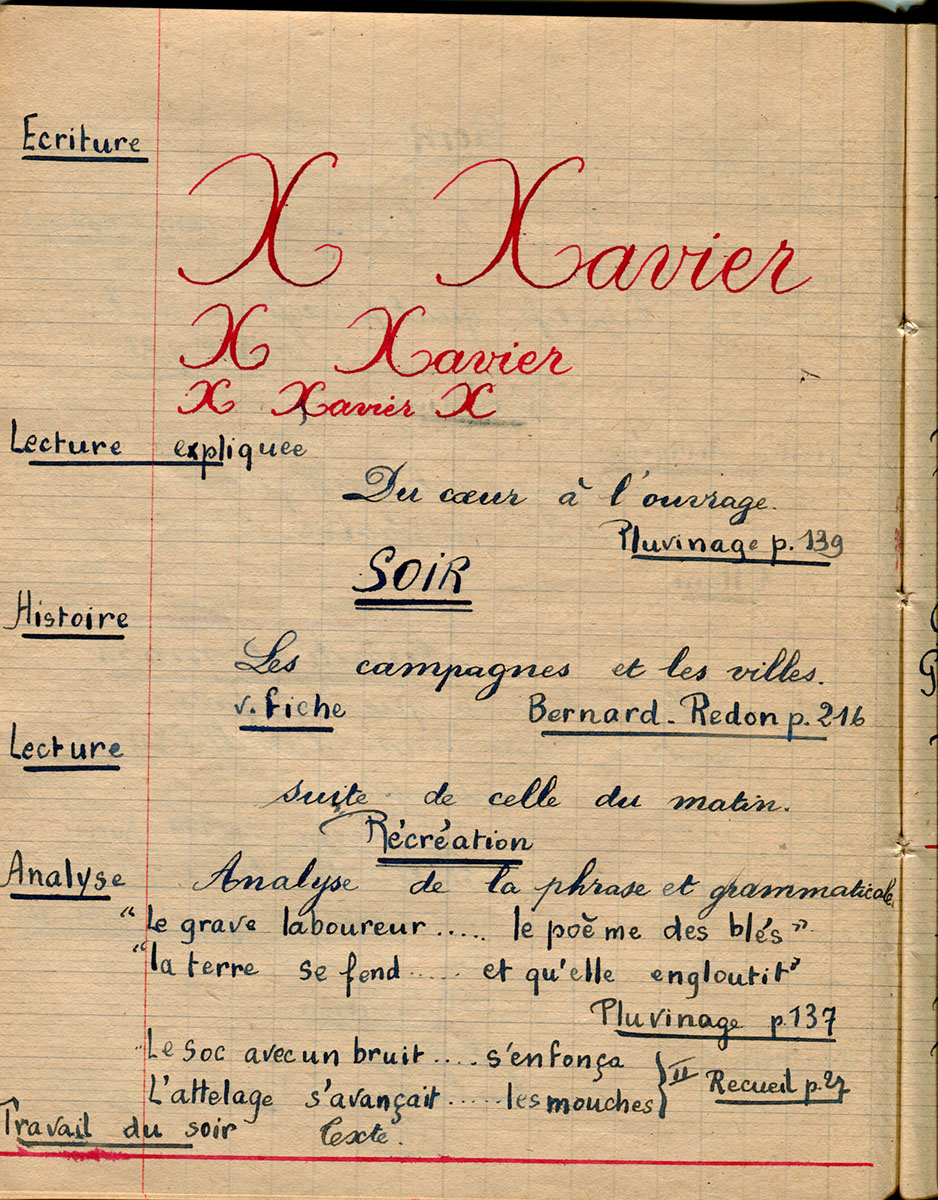 Ecriture
X Xavier
X Xavier
X Xavier X
Lecture expliquée
Du cœur à l'ouvrage.
Pluvinage p. 139
SOIR
Histoire
Les campagnes et les villes.
v. fiche Bernard-Redon p. 216
Lecture
suite de celle du matin.
Récréation
Analyse Analyse de la phrase et grammaticale.
"Le grave laboureur ..... le poème des blés".
"la terre se fend ..... et qu'elle engloutit"
Pluvinage p. 137
Le soc avec un bruit .... s'enfonça
L'attelage s'avançait ..... les mouches } II Recueil p. 27
Travail du soir Texte.